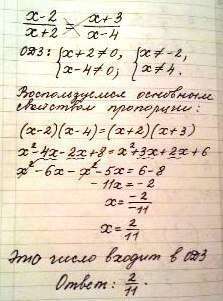 x-2/x+2 = x+3/x-4
ОДЗ: {x+2≠0, {x≠-2,
x-4≠0; x≠4.
Воспользуемся основным
свойством пропорции:
(x-2)(x-4)=(x+2)(x+3)
x²-4x-2x+8=x²+3x+2x+6
x²-6x-x²-5x=6-8
-11x=-2
x=-2/-11
x=2/11
Это число входит в ОДЗ
Ответ: 2/11.